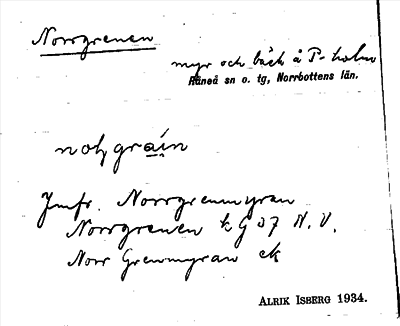 Norrgrenen
myr och bäck å P-holm
Råneå sn o. tg, Norrbottens län.
Jmfr. Norrgrenmyran
Norrgrenen k G 37 N.V.
Norr Grenmyran ek
ALRIK ISBERG 1934.